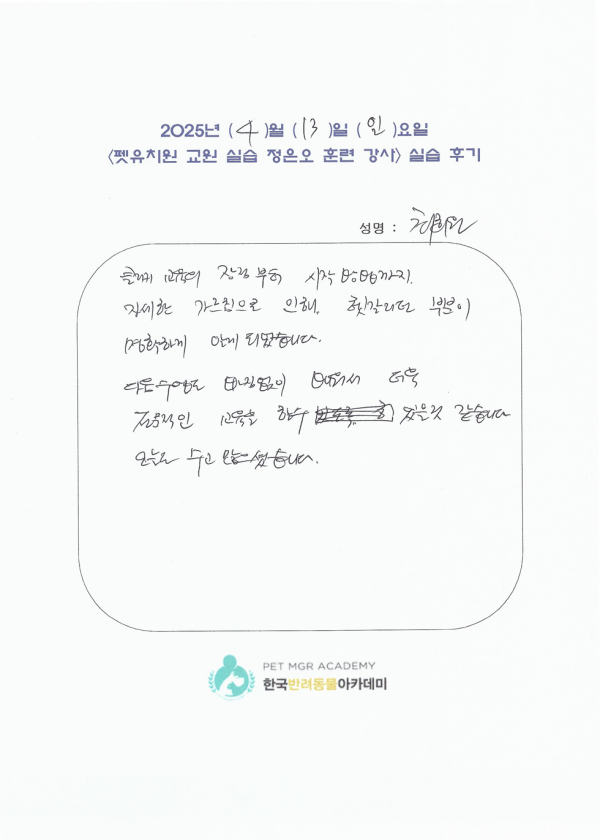 2025년 (4)월 (13)일 (일)요일
<펫유치원 교원 실습 정은오 훈련 강사> 실습 후기
성명 :
클리커 교육의 장점 부터 시작 방법까지.
자세한 가르침으로 인해, 헷갈리던 부분이
명확하게 알게 되었습니다.
다음 수업도 빠짐없이 배워서 더욱
전문적인 교육을 할수 있을것 같습니다
오늘도 수고 많으셨습니다.
PET MGR ACADEMY
한국반려동물아카데미